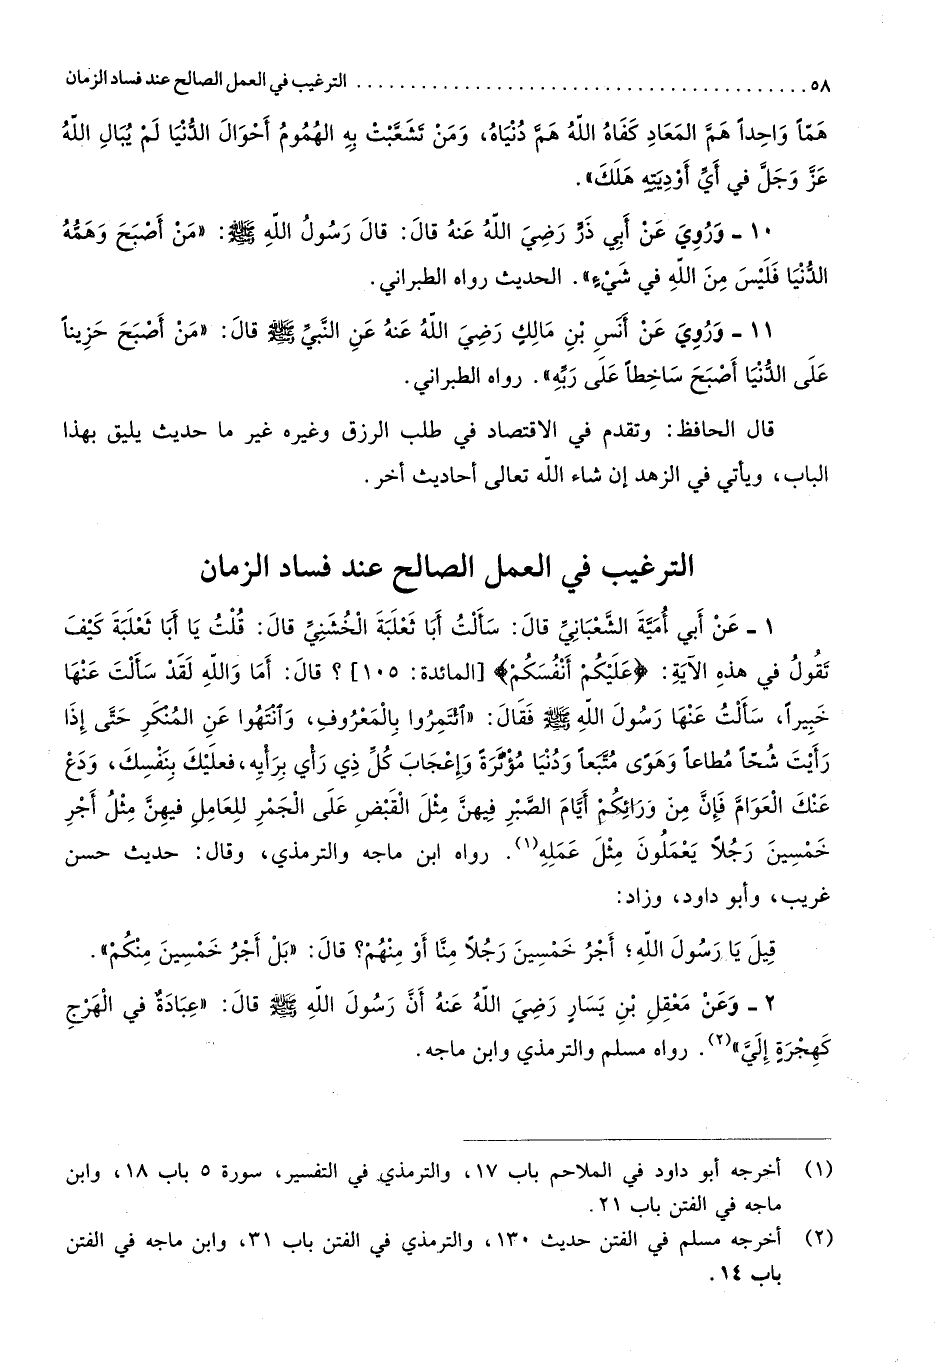 ٥٨ ........................................ الترغيب في العمل الصالح عند فساد الزمان
هَمّاً وَاحِداً هَمَّ المَعَادِ كَفَاهُ اللَّهُ هَمَّ دُنْيَاهُ، وَمَنْ تَشَعَّبَتْ بِهِ الهُمُومُ أَحْوَالَ الدُّنْيَا لَمْ يُبَالِ اللَّهُ
عَزَّ وَجَلَّ في أَيِّ أَوْدِيَتِهِ هَلَكَ».
١٠ ـ وَرُوِيَ عَنْ أَبِي ذَرٍّ رَضِيَ اللَّهُ عَنهُ قالَ: قالَ رَسُولُ اللَّهِ ﷺ: «مَنْ أَصْبَحَ وَهَمُّهُ
الدُّنْيَا فَلَيْسَ مِنَ اللَّهِ في شَيْءٍ». الحديث رواه الطبراني.
١١ ـ وَرُوِيَ عَنْ أَنَسِ بْنِ مَالِكٍ رَضِيَ اللَّهُ عَنهُ عَنِ النَّبِيِّ ﷺ قالَ: «مَنْ أَصْبَحَ حَزِيناً
عَلَى الدُّنْيَا أَصْبَحَ سَاخِطاً عَلَى رَبِّهِ». رواه الطبراني.
قال الحافظ: وتقدم في الاقتصاد في طلب الرزق وغيره غير ما حديث يليق بهذا
الباب، ويأتي في الزهد إن شاء اللَّه تعالى أحاديث أخر.
الترغيب في العمل الصالح عند فساد الزمان
١ ـ عَنْ أَبي أُمَيَّةَ الشَّعْبَانِيِّ قالَ: سَأَلْتُ أَبَا ثَعْلَبَةَ الْخُشَنِيِّ قالَ: قُلْتُ يَا أَبَا ثَعْلَبَةَ كَيْفَ
تَقُولُ في هذِهِ الآيَةِ: ﴿عَلَيْكُمْ أَنْفُسَكُمْ﴾ [المائدة: ١٠٥] ؟ قالَ: أَمَا وَاللَّهِ لَقَدْ سَأَلْتَ عَنْهَا
خَبِيراً، سَأَلْتُ عَنْهَا رَسُولَ اللَّهِ ﷺ فَقَالَ: «ائتَمِرُوا بِالْمَعْرُوفِ، وَانْتَهُوا عَنِ المُنْكَرِ حَتَّى إِذَا
رَأَيْتَ شُحّاً مُطاعاً وَهَوًى مُتَّبَعاً وَدُنْيَا مُؤْثَرَةً وَإِعْجَابَ كُلِّ ذِي رَأْيٍ بِرَأْيِهِ، فعلَيْكَ بِنَفْسِكَ، وَدَعْ
عَنْكَ الْعَوَامَّ فَإِنَّ مِنْ وَرَائِكُمْ أَيَّامَ الصَّبْرِ فِيهِنَّ مِثْلَ الْقَبْضِ عَلَى الْجَمْرِ لِلعَامِلِ فيهِنَّ مِثْلُ أَجْرِ
خَمْسِينَ رَجُلاً يَعْمَلُونَ مِثْلَ عَمَلِهِ(١). رواه ابن ماجه والترمذي، وقال: حديث حسن
غريب، وأبو داود، وزاد:
قِيلَ يَا رَسُولَ اللَّهِ؛ أَجْرُ خَمْسِينَ رَجُلاً مِنَّا أَوْ مِنْهُمْ؟ قالَ: «بَلْ أَجْرُ خَمْسِينَ مِنْكُمْ».
٢ ـ وَعَنْ مَعْقِلِ بْنِ يَسَارٍ رَضِيَ اللَّهُ عَنهُ أَنَّ رَسُولَ اللهِ ﷺ قالَ: «عِبَادَةٌ في الْهَرْجِ
كَهِجْرَةٍ إِلَيَّ»(٢). رواه مسلم والترمذي وابن ماجه.
(١) أخرجه أبو داود في الملاحم باب ١٧، والترمذي في التفسير، سورة ٥ باب ١٨، وابن
ماجه في الفتن باب ٢١.
(٢) أخرجه مسلم في الفتن حديث ١٣٠، والترمذي في الفتن باب ٣١، وابن ماجه في الفتن
باب ١٤.